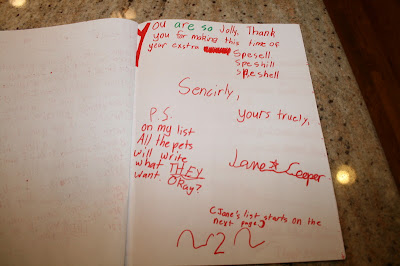 You are so Jolly. Thank
you for making this time of
year exstra
Spesell
Speshill
Speshell
Sencirly,
yours truely,
P.S.
on my list
All the pets
will write
what THEY
want OKay?
Jane Ceeper
(Jane's list starts on the
next page)
~2~